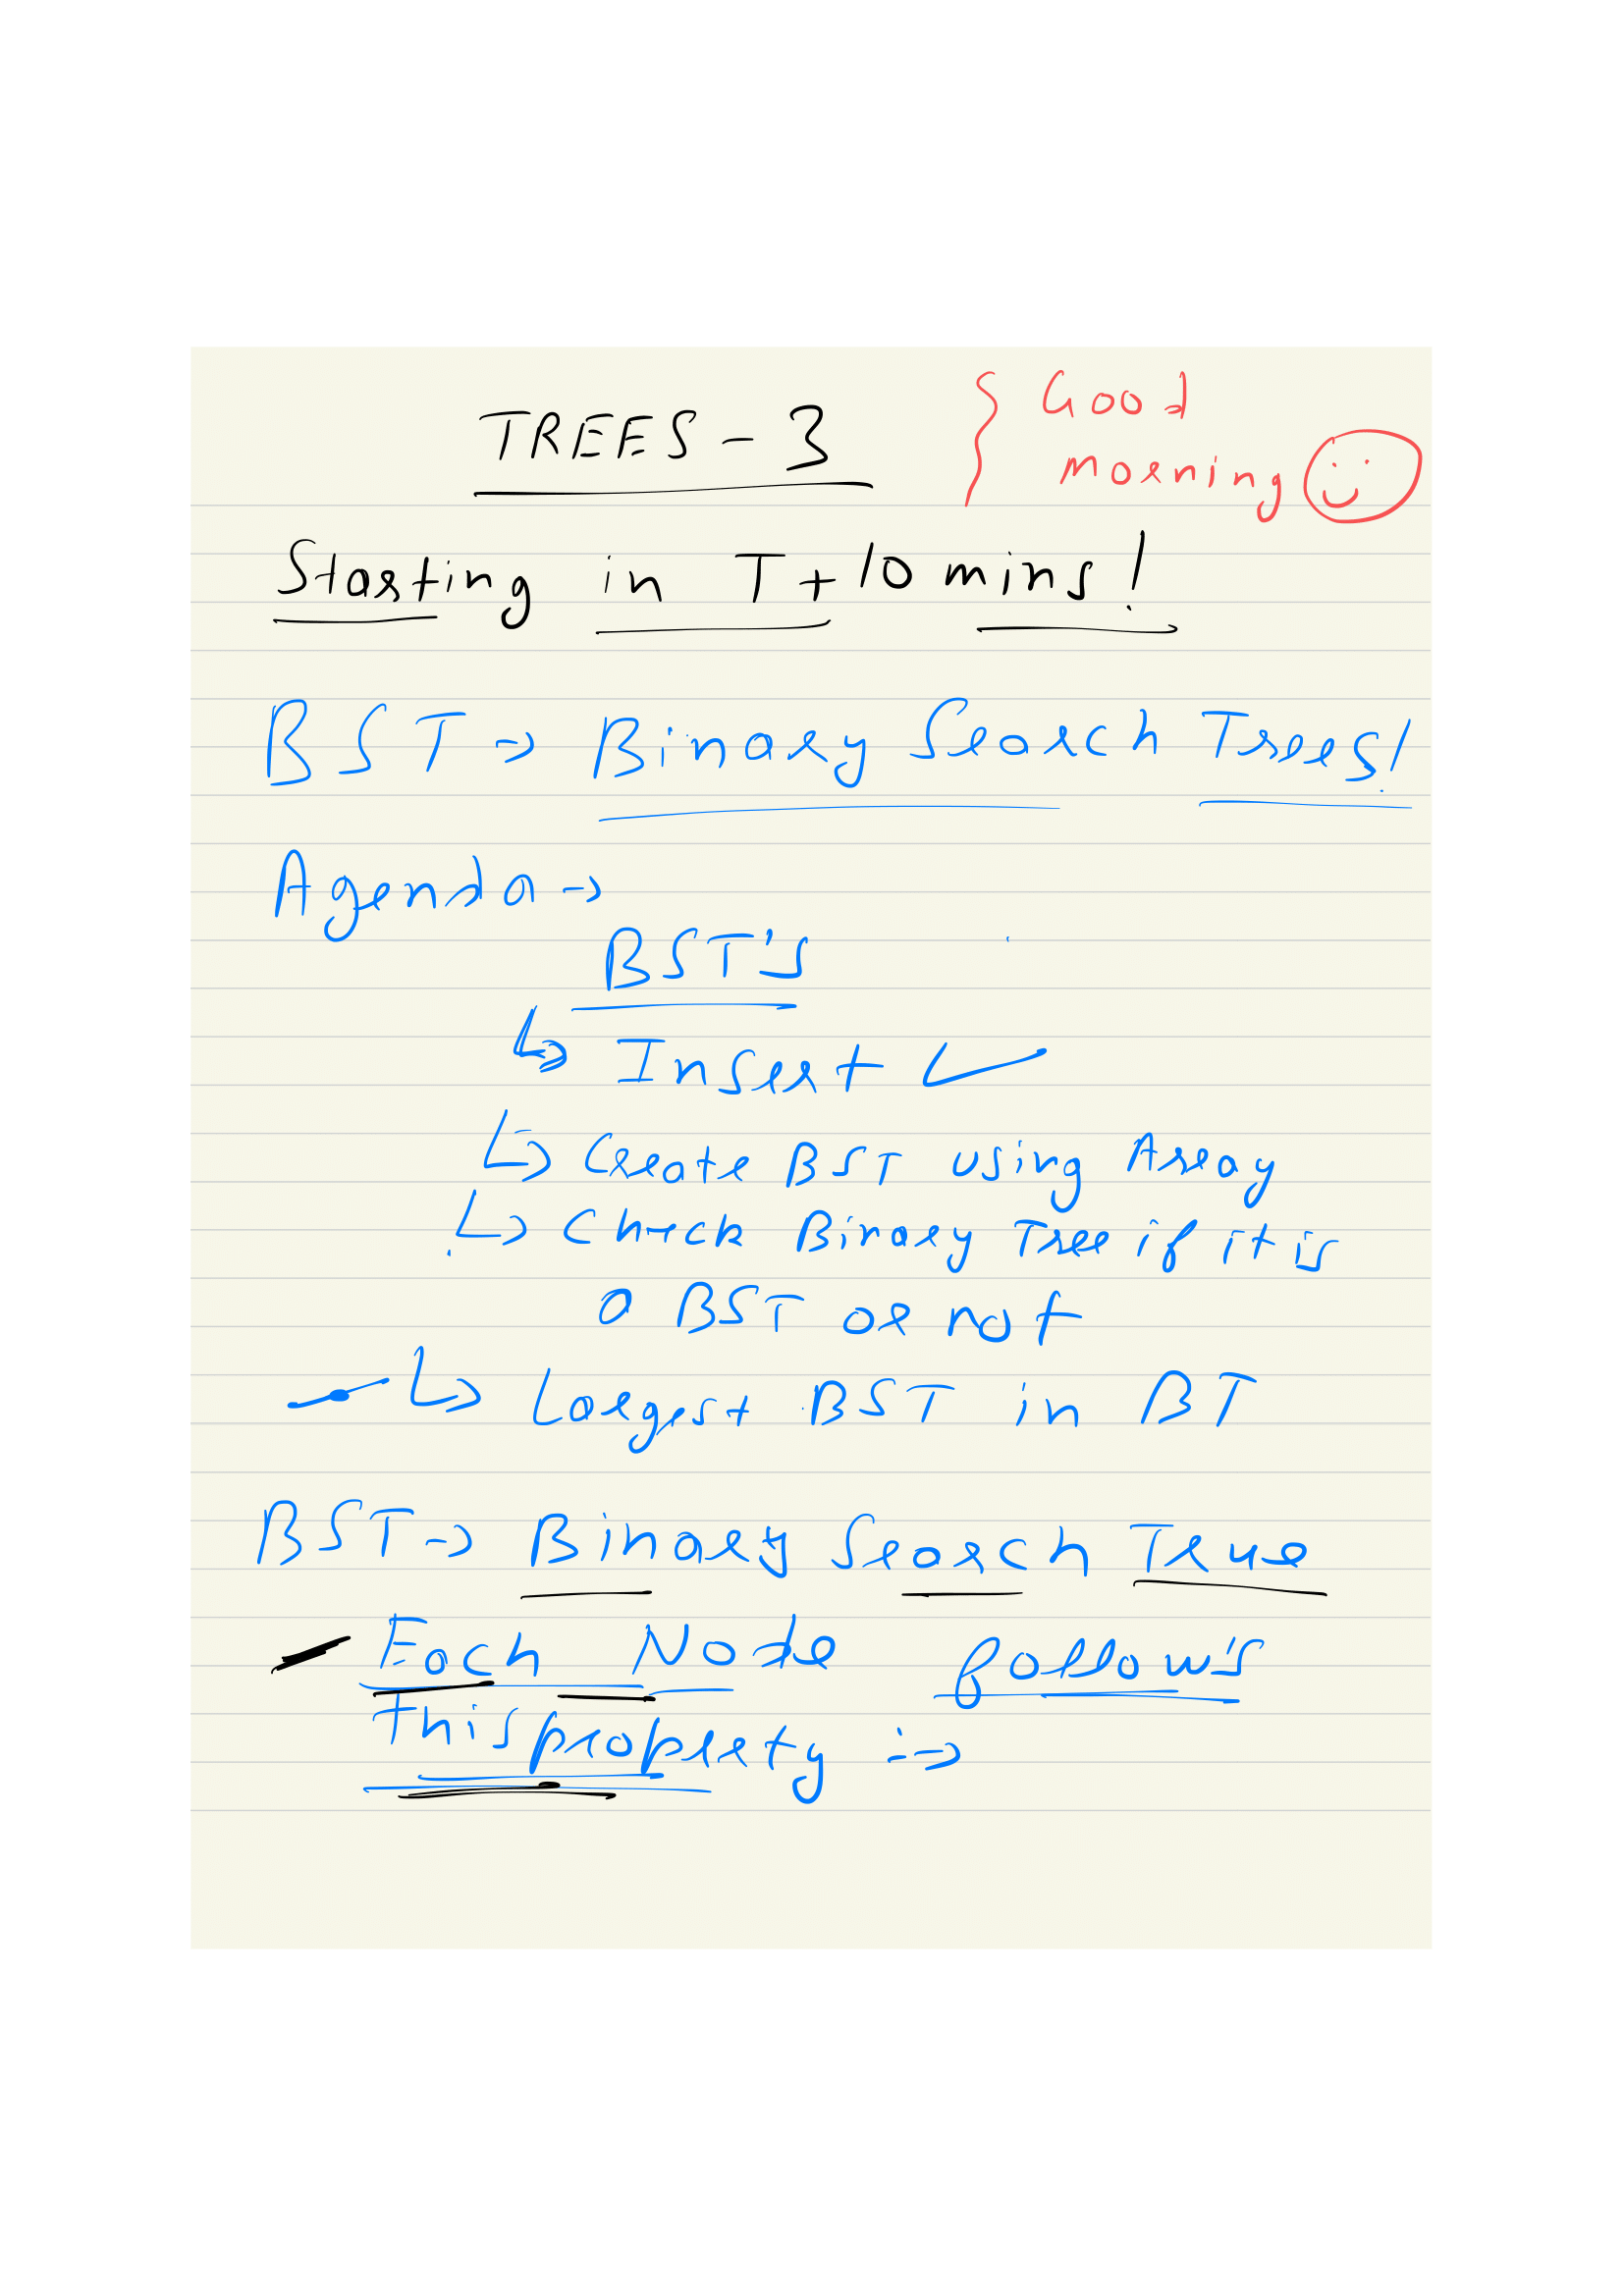 TREES - 3
Good
morning
Starting in T+10 mins!
BST → Binary Search Trees!
Agenda →
BST's
↳ Insert ✓
↳ Create BST using Array
↳ Check Binary Tree if it is
a BST or not
↳ Largest BST in BT
BST → Binary Search True
Each Node follow's
this property :→